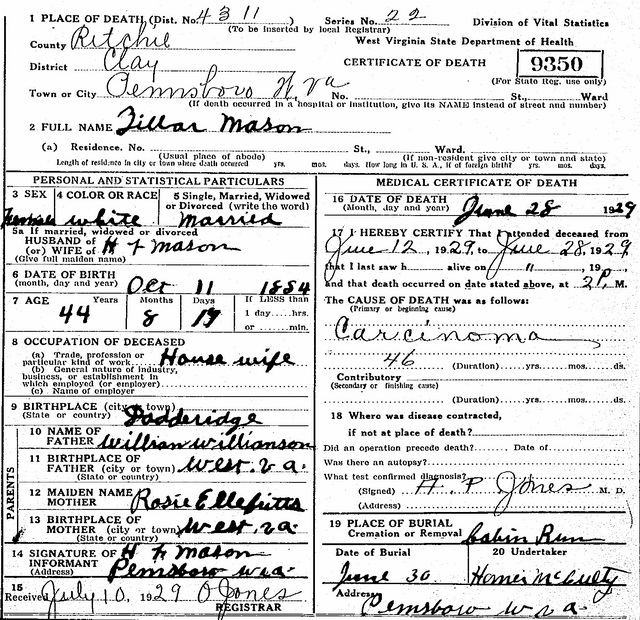 1 PLACE OF DEATH (Dist. No. 4311) Series No. 22 Division of Vital Statistics
(To be inserted by local Registrar)
County Ritchie West Virginia State Department of Health
District Clay CERTIFICATE OF DEATH 9350
(For State Reg. use only)
Town or City Pennsboro W. Va No. St., Ward
(If death occurred in a hospital or institution, give its NAME instead of street and number)
2 FULL NAME Zillar Mason
(a) Residence. No. St., Ward.
(Usual place of abode) (If non-resident give city or town and state)
Length of residence in city or town where death occurred yrs. mos. days. How long in U. S. A., if of foreign birth? yrs. mos. days.
PERSONAL AND STATISTICAL PARTICULARS
3 SEX 4 COLOR OR RACE 5 Single, Married, Widowed or Divorced (write the word)
Female white Married
5a If married, widowed or divorced
HUSBAND of
(or) WIFE of H F Mason
(Give full maiden name)
6 DATE OF BIRTH
(month, day and year) Oct 11 1884
7 AGE Years Months Days If LESS than
44 8 17 1 day....hrs.
or ....min.
8 OCCUPATION OF DECEASED
(a) Trade, profession or
particular kind of work House wife
(b) General nature of industry,
business, or establishment in
which employed (or employer)
(c) Name of employer
9 BIRTHPLACE (city or town)
(State or country) Dodderidge
PARENTS
10 NAME OF
FATHER William Williamson
11 BIRTHPLACE OF
FATHER (city or town) West. va.
(State or country)
12 MAIDEN NAME
MOTHER Rosie Ellefritts
13 BIRTHPLACE OF
MOTHER (city or town) West. va.
(State or country)
14 SIGNATURE OF H F Mason
INFORMANT
(Address) Pemsboro W.va.
15
Received July 10, 1929 O Jones
REGISTRAR
MEDICAL CERTIFICATE OF DEATH
16 DATE OF DEATH
(Month, day and year) June 28 1929
17 I HEREBY CERTIFY That I attended deceased from
June 12, 1929, to June 28, 1929
that I last saw h alive on " , 19
and that death occurred on date stated above, at 2 P. M.
The CAUSE OF DEATH was as follows:
(Primary or beginning cause)
Carcinoma
46
(Duration) yrs. mos. ds.
Contributory
(Secondary or finishing cause)
(Duration) yrs. mos. ds.
18 Where was disease contracted,
if not at place of death?
Did an operation precede death? Date of
Was there an autopsy?
What test confirmed diagnosis?
(Signed) H. P Jones M. D.
(Address)
19 PLACE OF BURIAL
Cremation or Removal Cabin Run
Date of Burial 20 Undertaker
June 30 Homer McCulty
Address
Pemsboro w v a.